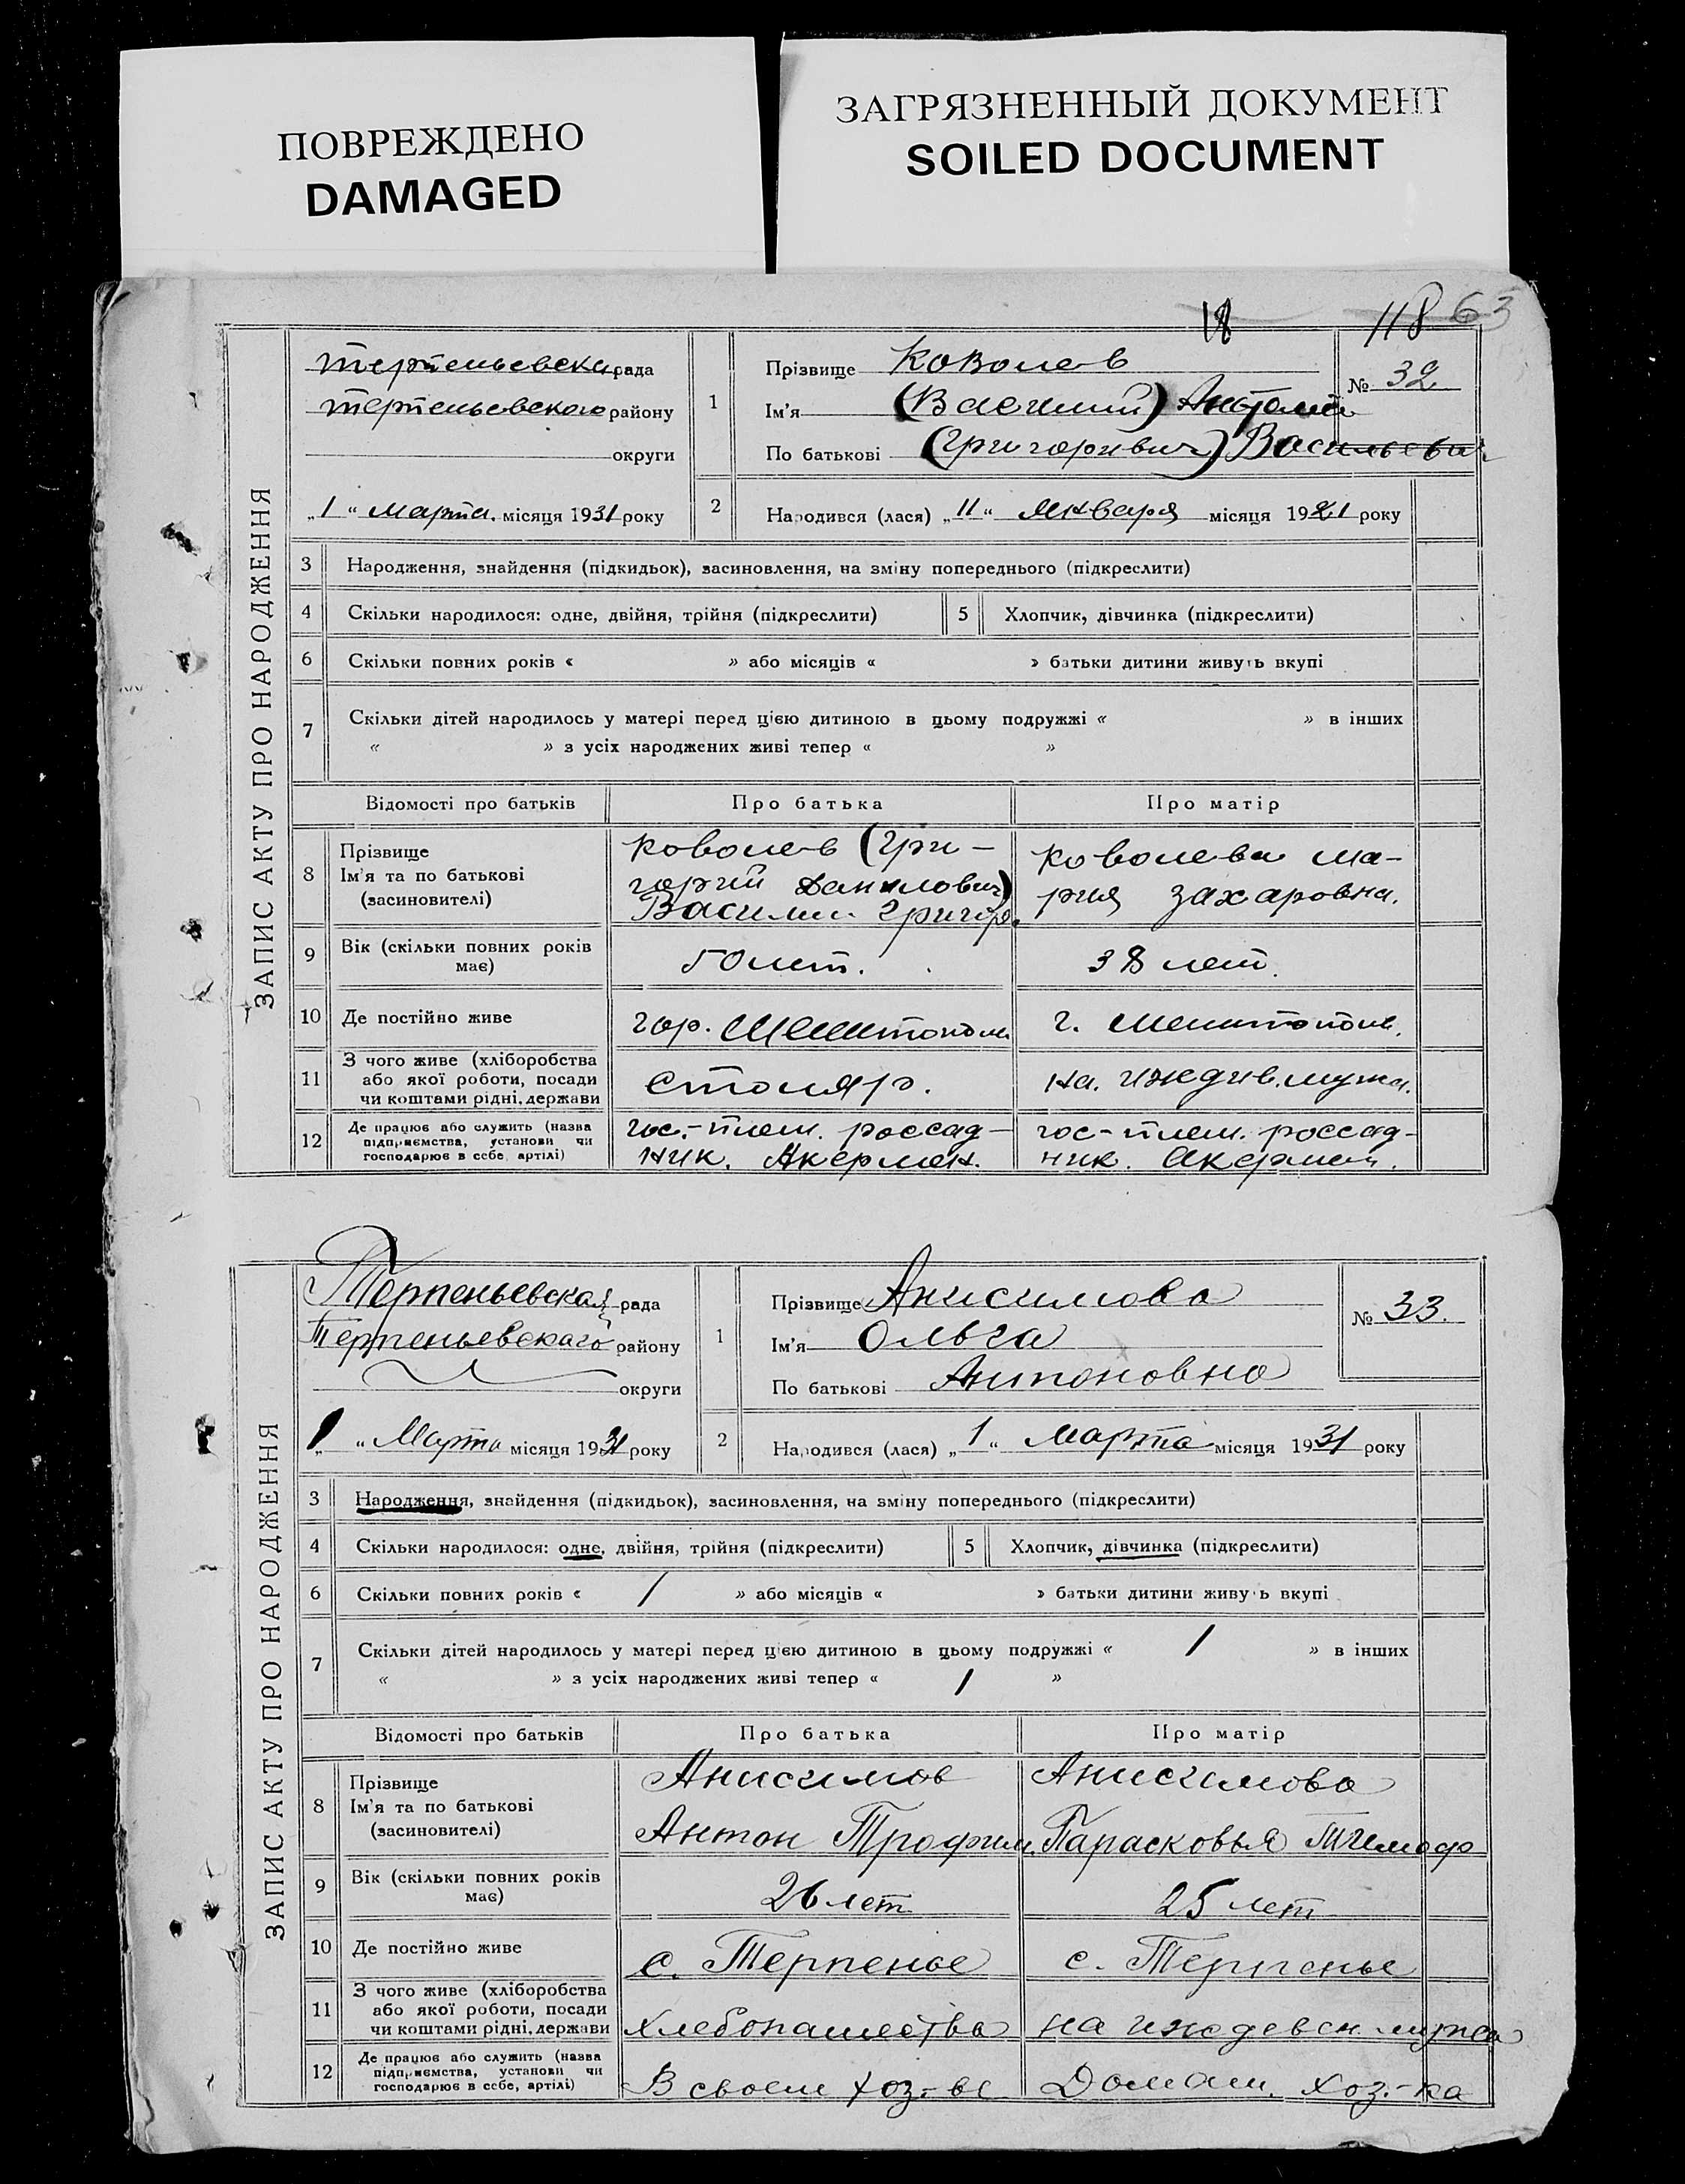 ПОВРЕЖДЕНО
DAMAGED
ЗАГРЯЗНЕННЫЙ ДОКУМЕНТ
SOILED DOCUMENT
18 118 63
ЗАПИС АКТУ ПРО НАРОДЖЕННЯ
рада
Терпеньевского району
округи
"1" Марта місяця 1931 року
1
Прізвище Коволев
Ім'я (Василий) Анатолий
По батькові (Григориевич) Васильевич
№ 32
2 Народився (лася) "11" Января місяця 1921 року
3 Народження, знайдення (підкидьок), засиновлення, на зміну попереднього (підкреслити)
4 Скільки народилося: одне, двійня, трійня (підкреслити) 5 Хлопчик, дівчинка (підкреслити)
6 Скільки повних років « » або місяців « » батьки дитини живуть вкупі
7 Скільки дітей народилось у матері перед цією дитиною в цьому подружжі « » в інших
« » з усіх народжених живі тепер « »
Відомості про батьків Про батька Про матір
8 Прізвище
Ім'я та по батькові
(засиновителі)
Коволев (Гри-
горий Данилович)
Василий Григор.
Коволева Ма-
рия Захаровна.
9 Вік (скільки повних років
має)
50 лет. 38 лет.
10 Де постійно живе гор. Мелитополь г. Мелитополь.
11 З чого живе (хліборобства
або якої роботи, посади
чи коштами рідні, держави
Столяр. на иждив. мужа.
12 Де працює або служить (назва
підприємства, установи чи
господарює в себе, артілі)
гос.-плем. россад-
ник. Акермен.
гос-плем. россад-
ник. Акермен.
ЗАПИС АКТУ ПРО НАРОДЖЕННЯ
Терпеньевская рада
Терпеньевскаго району
округи
"1" Марта місяця 1931 року
1
Прізвище Анисимова
Ім'я Ольга
По батькові Антоновна
№ 33.
2 Народився (лася) "1" Марта місяця 1931 року
3 Народження, знайдення (підкидьок), засиновлення, на зміну попереднього (підкреслити)
4 Скільки народилося: одне, двійня, трійня (підкреслити) 5 Хлопчик, дівчинка (підкреслити)
6 Скільки повних років « / » або місяців « » батьки дитини живуть вкупі
7 Скільки дітей народилось у матері перед цією дитиною в цьому подружжі « 1 » в інших
« » з усіх народжених живі тепер « 1 »
Відомості про батьків Про батька Про матір
8 Прізвище
Ім'я та по батькові
(засиновителі)
Анисимов
Антон Трофим.
Анисимова
Парасковья Тимоф
9 Вік (скільки повних років
має)
26 лет 25 лет
10 Де постійно живе с. Терпенье с. Терпенье
11 З чого живе (хліборобства
або якої роботи, посади
чи коштами рідні, держави
хлебопашества на иждевен мужа
12 Де працює або служить (назва
підприємства, установи чи
господарює в себе, артілі)
В своем хоз-ве Домаш. хоз.-ка